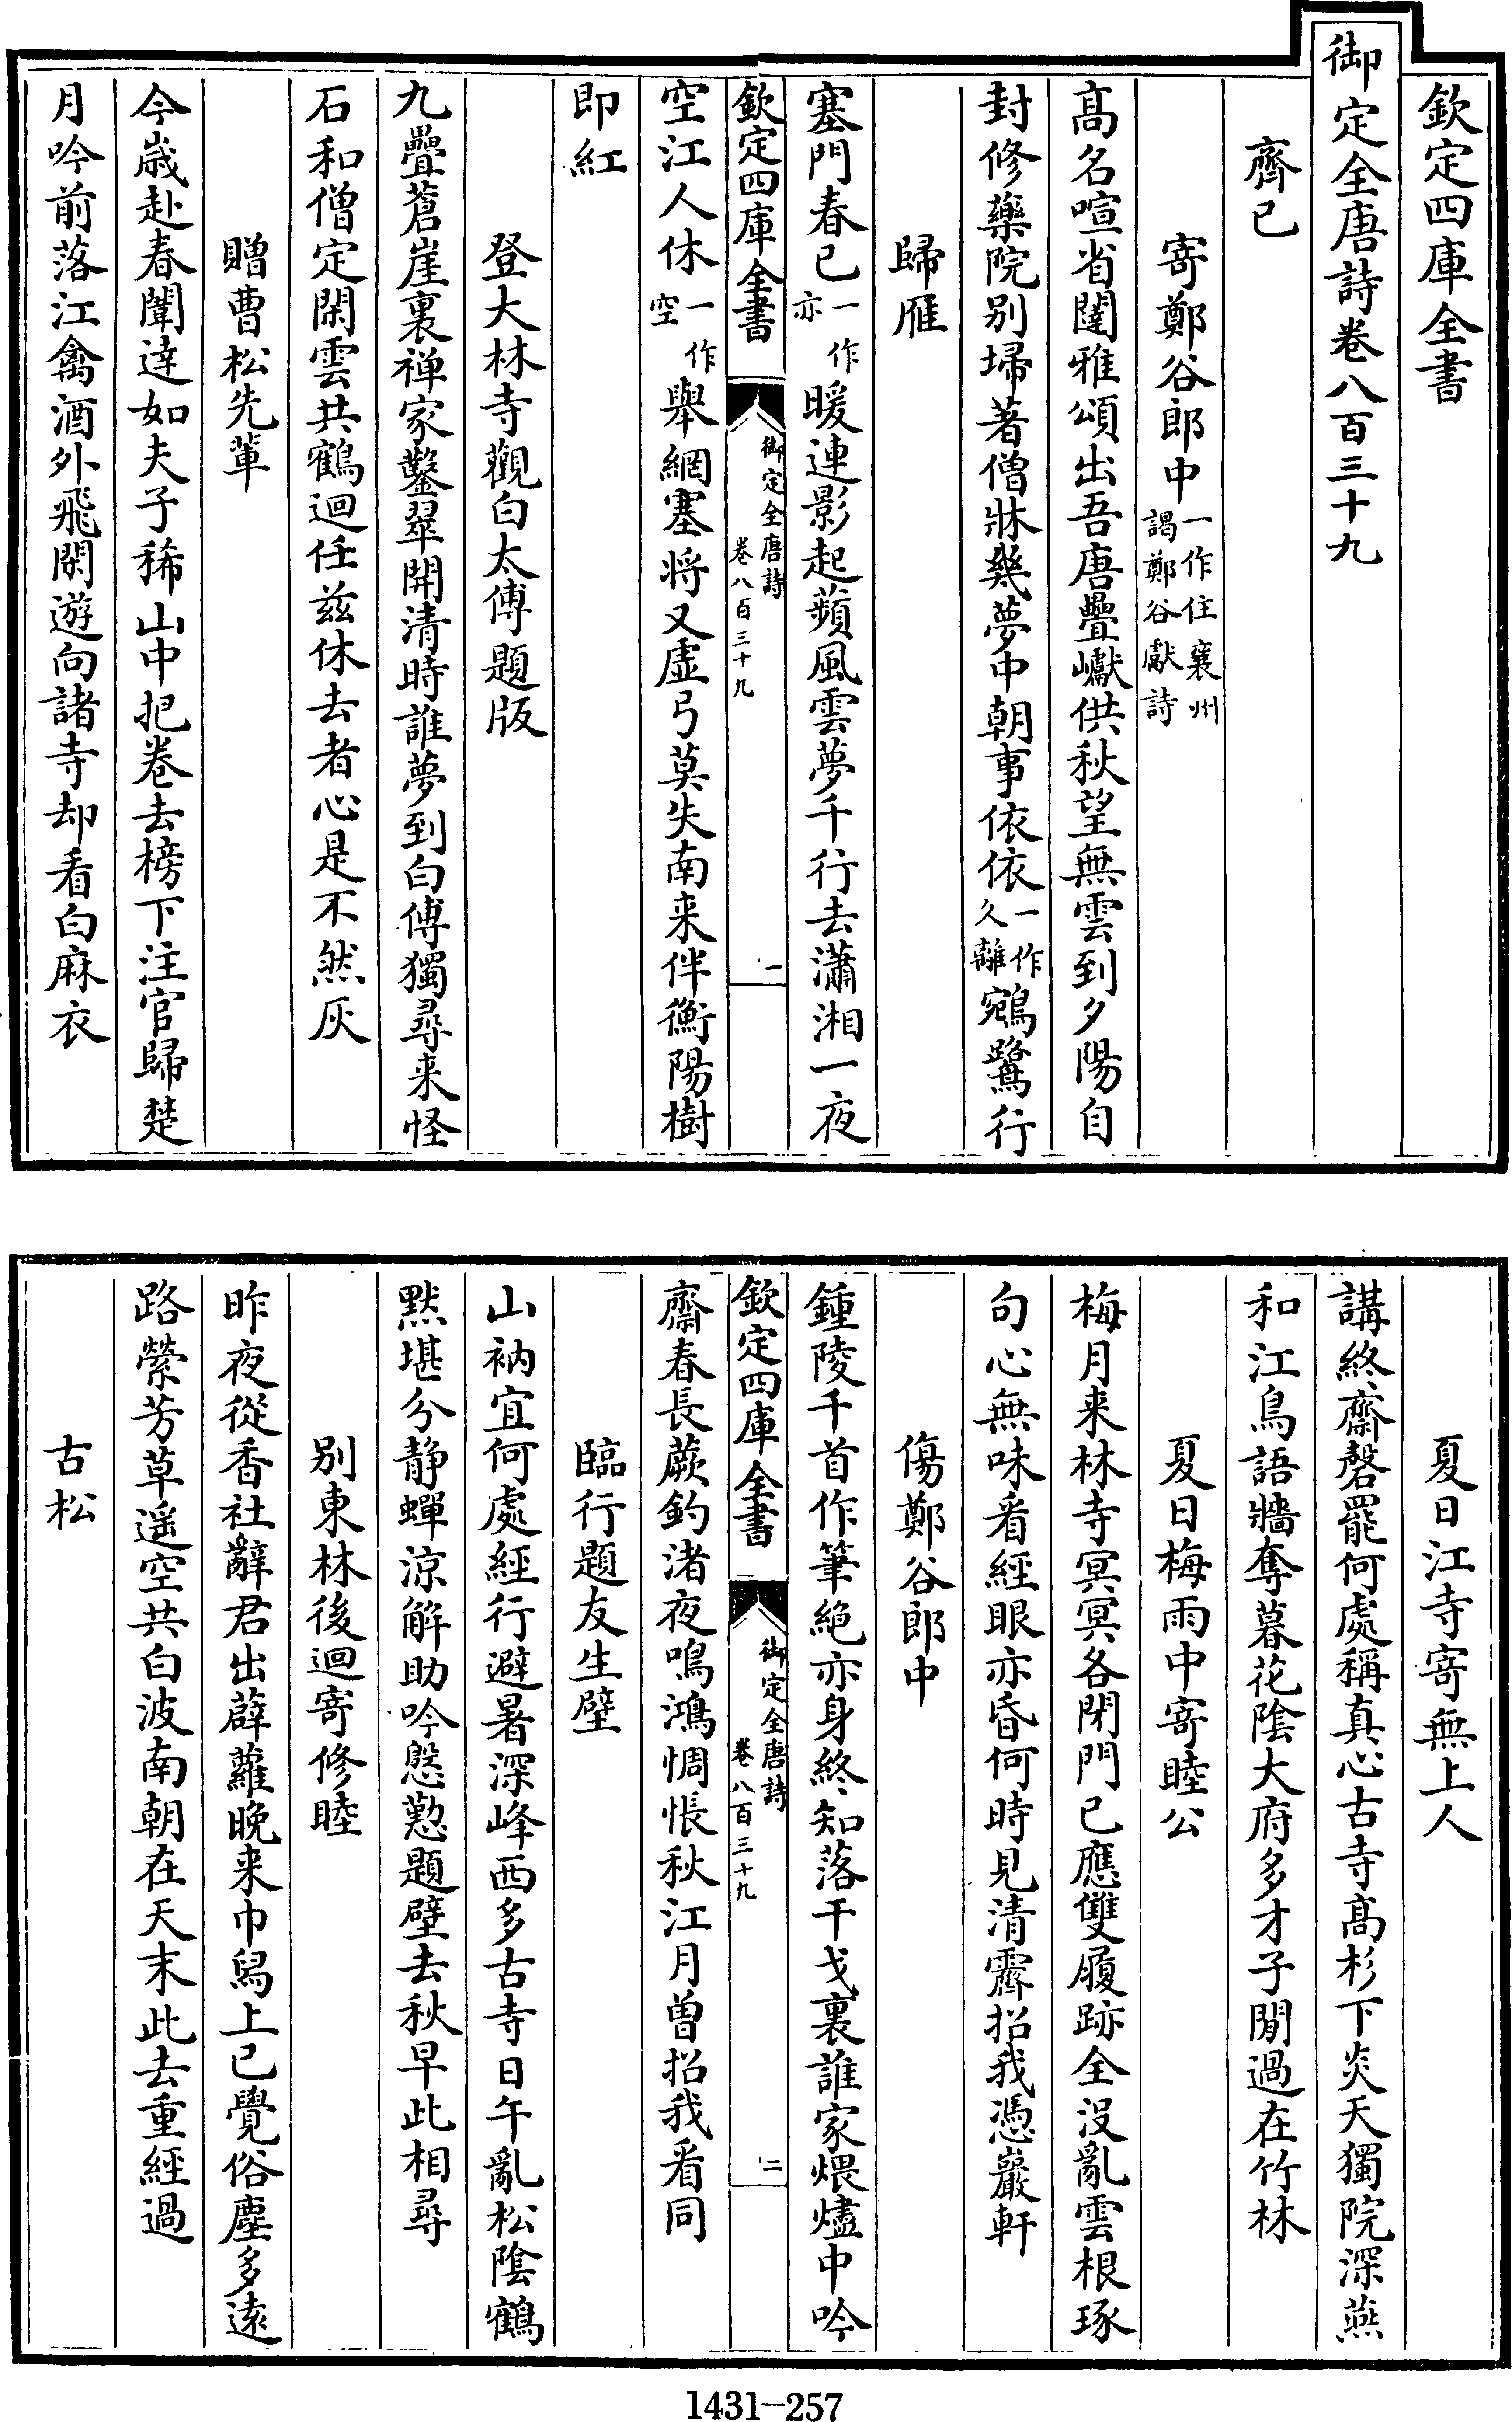 欽定四庫全書
御定全唐詩卷八百三十九
齊已
寄鄭谷郎中一作住襄州謁鄭谷獻詩
髙名喧省闥雅頌出吾唐疊巘供秋望無雲到夕陽自
封修藥院别埽著僧牀幾夢中朝事依依一作久離鵷鷺行
歸雁
塞門春已一作亦暖連影起蘋風雲夢千行去瀟湘一夜
空江人休一作空舉網塞将又虚弓莫失南来伴衡陽樹
即紅
登大林寺觀白太傅題版
九疊蒼崖裏禅家鑿翠開清時誰夢到白傅獨尋来怪
石和僧定閑雲共鶴迴任兹休去者心是不然灰
贈曹松先輩
今歳赴春闈達如夫子稀山中把卷去榜下注官歸楚
月吟前落江禽酒外飛閑遊向諸寺却看白麻衣
欽定四庫全書
御定全唐詩
卷八百三十九
一
夏日江寺寄無上人
講終齋磬罷何處稱真心古寺髙杉下炎天獨院深燕
和江鳥語牆奪暮花陰大府多才子閒過在竹林
夏日梅雨中寄睦公
梅月来林寺冥冥各閉門已應雙履跡全没亂雲根琢
句心無味看經眼亦昏何時見清霽招我憑巖軒
傷鄭谷郎中
鍾陵千首作筆絶亦身終知落干戈裏誰家煨燼中吟
齋春長蕨釣渚夜鳴鴻惆悵秋江月曽招我看同
臨行題友生壁
山衲宜何處經行避暑深峰西多古寺日午亂松陰鶴
黙堪分静蟬凉解助吟慇懃題壁去秋早此相尋
别東林後迴寄修睦
昨夜從香社辭君出薜蘿晩来巾舄上已覺俗塵多逺
路縈芳草遥空共白波南朝在天末此去重經過
古松
欽定四庫全書
御定全唐詩
卷八百三十九
二
1431-257